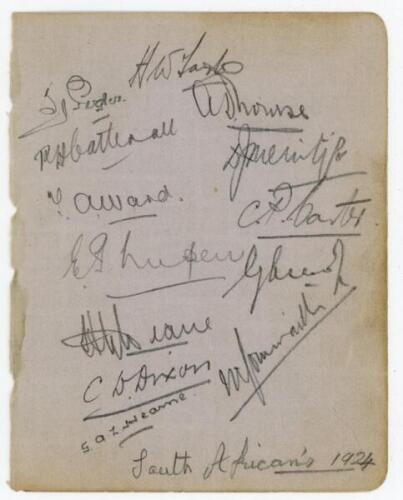 H W Taylor
S J Pegler.
A D Nourse
R H Catterall
D J Meintjes
T. A Ward.
C. P. Carter
E. A. Nupen
G Hearne
H G Deane
M J Commaille
C D Dixon
G. A. L. Hearne
South African's 1924